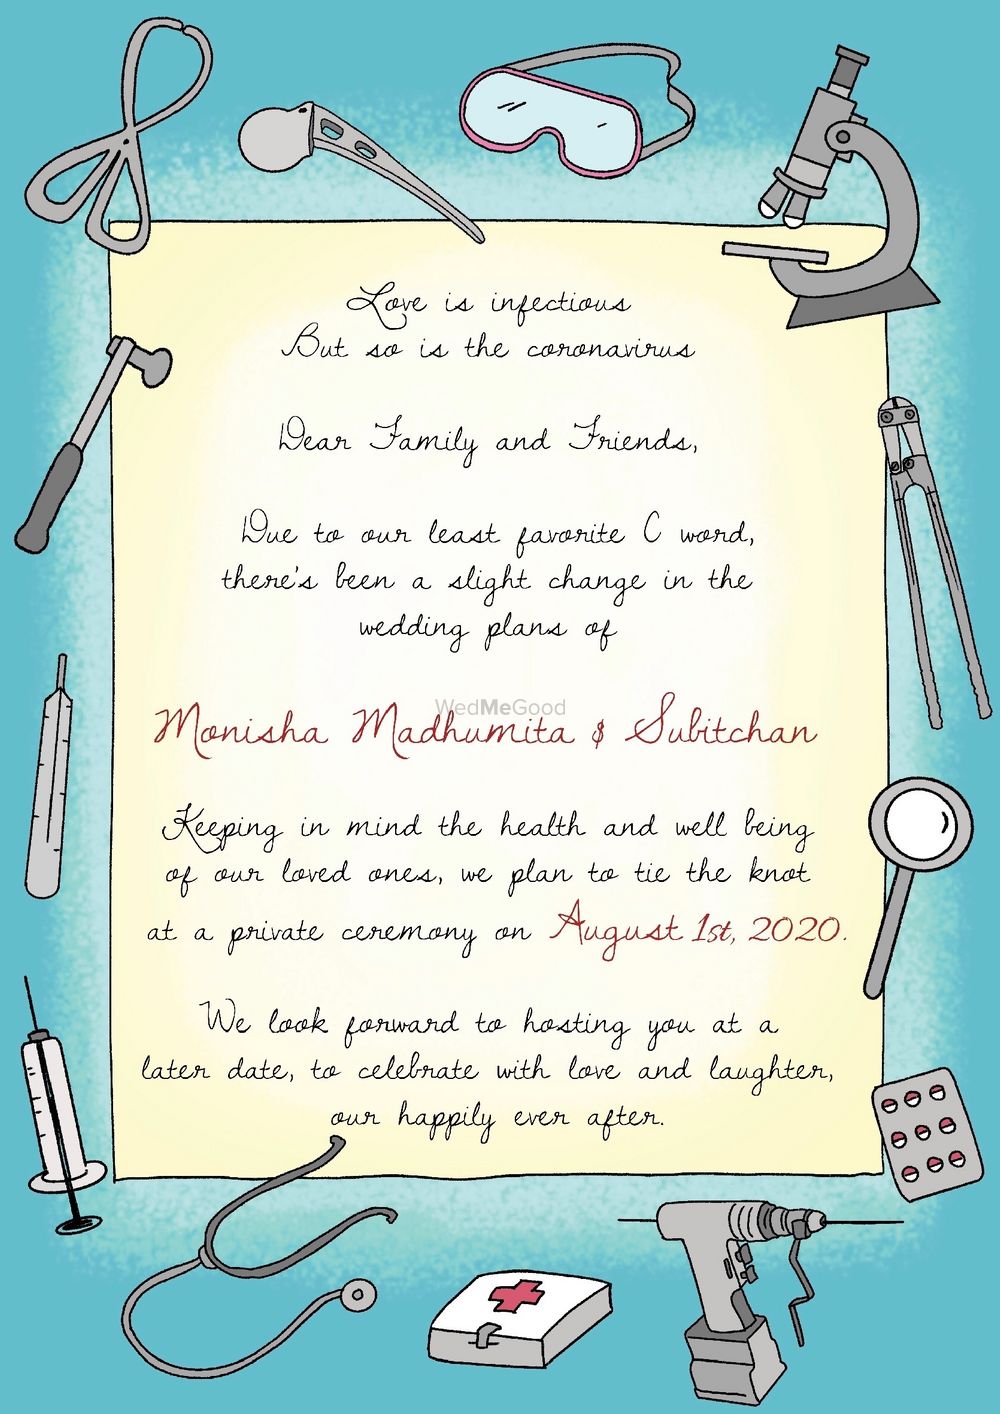 Love is infectious
But so is the coronavirus
Dear Family and Friends,
Due to our least favorite C word,
there's been a slight change in the
wedding plans of
WedMeGood
Monisha Madhumita & Subitchan
Keeping in mind the health and well being
of our loved ones, we plan to tie the knot
at a private ceremony on August 1st, 2020.
We look forward to hosting you at a
later date, to celebrate with love and laughter,
our happily ever after.